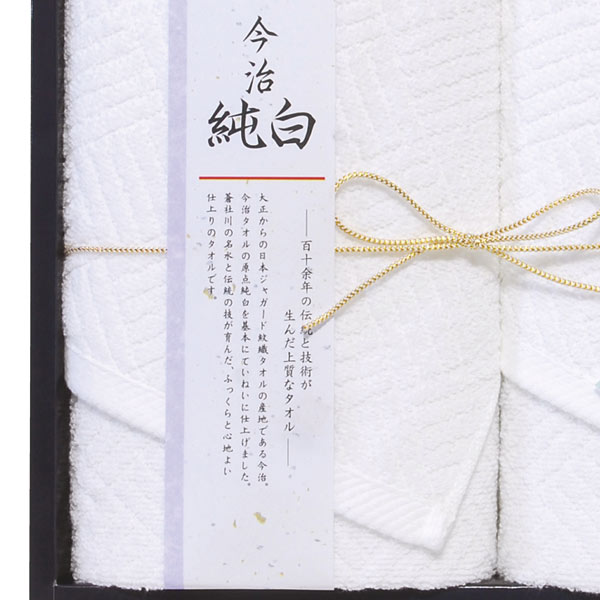 今治
純白
——百十余年の伝統と技術が
生んだ上質なタオル——
大正からの日本ジャガード紋織タオルの産地である今治。
今治タオルの原点純白を基本にていねいに仕上げました。
蒼社川の名水と伝統の技が育んだ、ふっくらと心地よい
仕上りのタオルです。